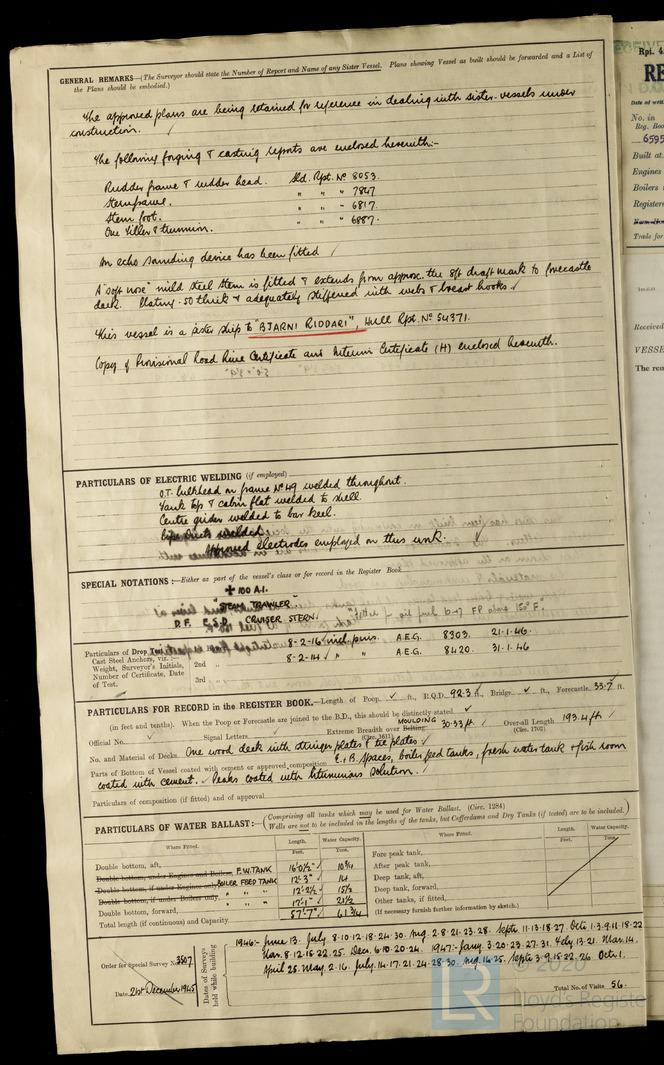 GENERAL REMARKS—(The Surveyor should state the Number of Report and Name of any Sister Vessel. Plans showing Vessel as built should be forwarded and a List of
the Plans should be embodied.)
The approved plans are being retained for reference in dealing with sister vessels under
construction.
The following forging & casting reports are enclosed herewith:-
Rudder frame & rudder head. Sld. Rpt. No 8053.
Sternframe. " " " 7847
Stem foot. " " " 6817.
One tiller & trunnion. " " " 6887.
An echo sounding device has been fitted
A "soft nose" mild steel stem is fitted & extends from approx. the 8ft draft mark to forecastle
deck. Plating .50 thick & adequately stiffened with webs & breast hooks.
This vessel is a sister ship to "BJARNI RIDDARI", Hull Rpt. No 54371.
Copy of Provisional Load Line Certificate and Interim Certificate (H) enclosed herewith.
PARTICULARS OF ELECTRIC WELDING (if employed)
O.T. bulkhead on frame No 49 welded throughout.
Tank top & cabin flat welded to shell.
Centre girder welded to bar keel.
electrodes employed on this work.
SPECIAL NOTATIONS:—Either as part of the vessel's class or for record in the Register Book
+100 A.1.
"STEAM TRAWLER"
D.F. E.S.D. CRUISER STERN. "Fitted oil fuel FP above 150° F."
Particulars of Drop Test of
Cast Steel Anchors, viz.:—
Weight, Surveyor's Initials,
Number of Certificate, Date
of Test.
8-2-16 incl. pins. A.E.G. 8303. 21.1.46.
2nd " 8-2-14 " " A.E.G. 8420. 31.1.46
3rd "
PARTICULARS FOR RECORD in the REGISTER BOOK.—Length of Poop ft., R.Q.D. 92.3 ft., Bridge ft., Forecastle 33.7 ft.
(in feet and tenths). When the Poop or Forecastle are joined to the B.D., this should be distinctly stated
Official No. Signal Letters Extreme Breadth over Belting MOULDING 30.53 ft Over-all Length 193.4 ft
(Circ. 1611) (Circ. 1702)
No. and Material of Decks One wood deck with stringer plates & tie plates
Parts of Bottom of Vessel coated with cement or approved composition E. & B. spaces, boiler feed tanks, fresh water tank & fish room
coated with cement. Peaks coated with bituminous solution.
Particulars of composition (if fitted) and of approval
PARTICULARS OF WATER BALLAST:—(Comprising all tanks which may be used for Water Ballast. (Circ. 1284)
Wells are not to be included in the lengths of the tanks, but Cofferdams and Dry Tanks (if tested) are to be included.)
Where Fitted. Length. Water Capacity. Where Fitted. Length. Water Capacity.
Feet. Tons. Feet. Tons.
Double bottom, aft,
Double bottom, under Engines and Boilers, F.W. TANK 16'0½" 10¾
Double bottom, if under Engines only, BOILER FEED TANK 12'-3" 14
Double bottom, if under Boilers only, " " " 12'-2½" 15½
Double bottom, forward, " " " 17'-1" 21½
Total length (if continuous) and Capacity 57'-7" 61¾
Fore peak tank,
After peak tank,
Deep tank, aft,
Deep tank, forward,
Other tanks, if fitted,
(If necessary furnish further information by sketch.)
Order for Special Survey No. 3507
Date 21st December 1945
Dates of Surveys
held while building
1946:- June 13. July 8.10.12.18.24.30. Aug. 2.8.21.23.28. Septr 11.13.18.27. Octr. 1.3.9.11.18.22
Nov. 8.12.18.22.25. Decr. 6.10.20.24. 1947:- Jany. 3.20.23.27.31. Feby 13.21. Mar. 14.
April 25. May. 2.16. July. 14.17.21.24.28.30. Aug. 14.25. Septr 3.9.15.22.26. Octr 1.
Total No. of Visits 56.
LR
© 2020
Lloyd's Register
Foundation
Rpt. 4
RE
Date of writ
No. in
Reg. Boo
6595
Built at
Engines
Boilers
Registere
Trade for
Received
VESSE
The rem